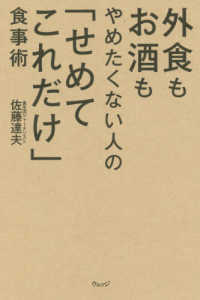 外食も
お酒も
やめたくない人の
「せめて
これだけ」
食事術
佐藤達夫
ウェッジ